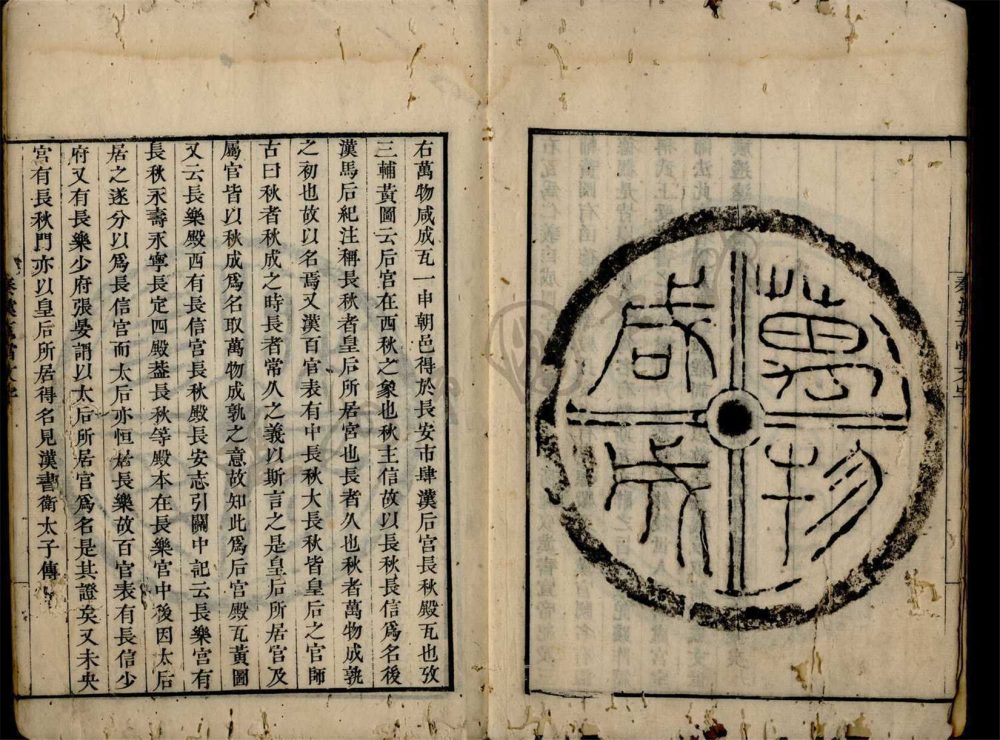 萬物
咸成
右萬物咸成瓦一申朝邑得於長安市肆漢后宫長秋殿瓦也攷
三輔黃圖云后宫在西秋之象也秋主信故以長秋長信爲名後
漢馬后紀注稱長秋者皇后所居宫也長者久也秋者萬物成孰
之初也故以名焉又漢百官表有中長秋大長秋皆皇后之官師
古曰秋者秋成之時長者常久之義以斯言之是皇后所居宫及
屬官皆以秋成爲名取萬物成孰之意故知此爲后宫殿瓦黃圖
又云長樂殿西有長信宫長秋殿長安志引關中記云長樂宫有
長秋永壽永寧長定四殿葢長秋等殿本在長樂宫中後因太后
居之遂分以爲長信宫而太后亦恒居長樂故百官表有長信少
府又有長樂少府張晏謂以太后所居宫爲名是其證矣又未央
宫有長秋門亦以皇后所居得名見漢書衛太子傳